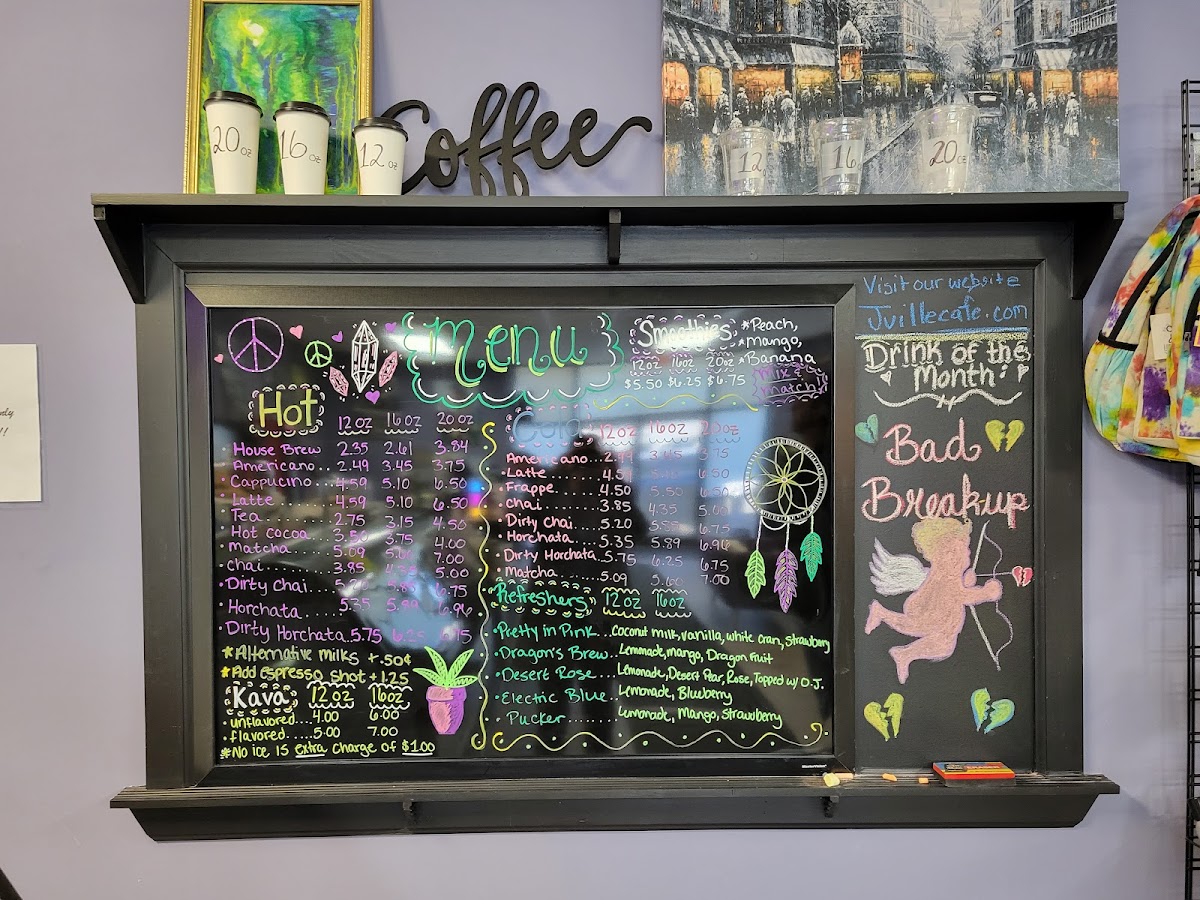 20 oz
16 oz
12 oz
Coffee
12
16
20 oz
Visit our website
Jvillecafe.com
Drink of the
Month:
Bad
Breakup
Menu
Smoothies
* Peach,
* Mango,
* Banana
Mix &
Match!
12oz 16oz 20oz
$5.50 $6.25 $6.75
Hot 12oz 16oz 20oz
• House Brew 2.35 2.61 3.84
• Americano... 2.49 3.45 3.75
• Cappucino... 4.59 5.10 6.50
• Latte 4.59 5.10 6.50
• Tea 2.75 3.15 4.50
• Hot cocoa 3.50 3.75 4.00
• Matcha 5.09 7.00
• Chai 3.85 5.00
• Dirty Chai 6.75
• Horchata 5.35 5.89 6.96
• Dirty Horchata 5.75 6.25 6.75
* Alternative milks + .50¢
* Add espresso shot + 1.25
Kava 12oz 16oz
• unflavored... 4.00 6.00
• flavored..... 5.00 7.00
* No ice is extra charge of $1.00
Cold 12oz 16oz 20oz
• Americano 3.45 3.75
• Latte 4.59 6.50
• Frappe 4.50 5.50 6.50
• Chai 3.85 4.35 5.00
• Dirty Chai 5.20 5.85 6.75
• Horchata 5.35 5.89 6.96
• Dirty Horchata 5.75 6.25 6.75
• Matcha 5.09 5.60 7.00
Refreshers 12oz 16oz
• Pretty in Pink... Coconut milk, vanilla, white cran, strawberry
• Dragon's Brew.. Lemonade, mango, Dragon Fruit
• Desert Rose... Lemonade, Desert Pear, Rose, Topped w/ O.J.
• Electric Blue.. Lemonade, Blueberry
• Pucker....... Lemonade, Mango, strawberry